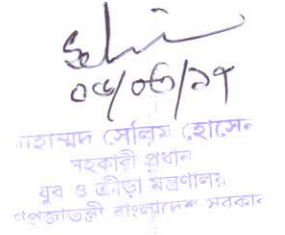 ০৫/০৬/১৭
মোহাম্মদ সেলিম হোসেন
সহকারী প্রধান
যুব ও ক্রীড়া মন্ত্রণালয়
গণপ্রজাতন্ত্রী বাংলাদেশ সরকার